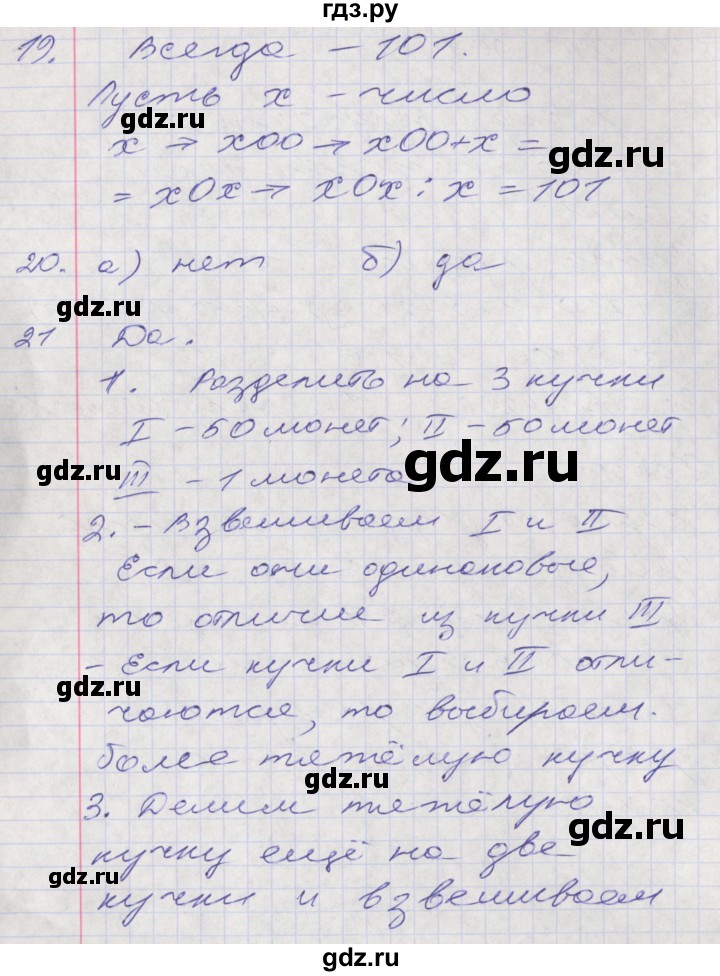 гдз.ру
19. Всегда - 101.
Пусть x - число
gdz.ru
x → x00 → x00+x =
gdz.ru
= x0x → x0x : x = 101
20. а) нет б) да
gdz.ru
gdz.ru
21 Да.
1. Разделить на 3 кучки
I - 50 монет; II - 50 монет
gdz.ru
gdz.ru
III - 1 монета
2. - Взвешиваем I и II
gdz.ru
Если они одинаковые,
то отличие из кучки III
- Если кучки I и II отли-
gdz.ru
чаются, то выбираем.
более тяжёлую кучку
gdz.ru
3. Делим тяжёлую
gdz.ru
кучку ещё на две
gdz.ru
кучки и взвешиваем
gdz.ru